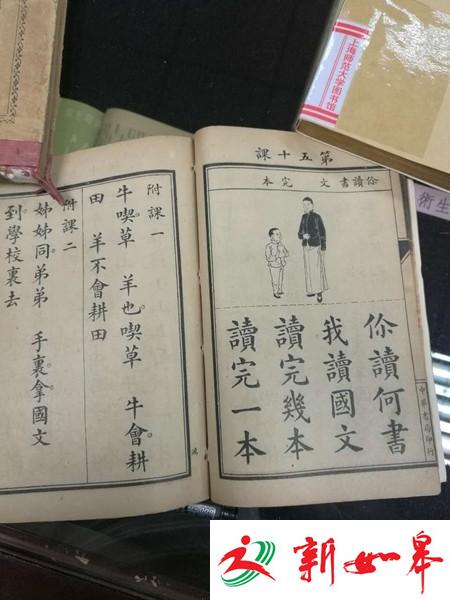 上海师范大学图书馆
第五十課
伱讀書文 完本
伱讀何書
我讀國文
讀完幾本
讀完一本
中華書局印行
附課一
牛喫草 羊也喫草 牛會耕
田 羊不會耕田
附課二
姊姊同弟弟 手裏拿國文
到學校裏去
術生
新如皋